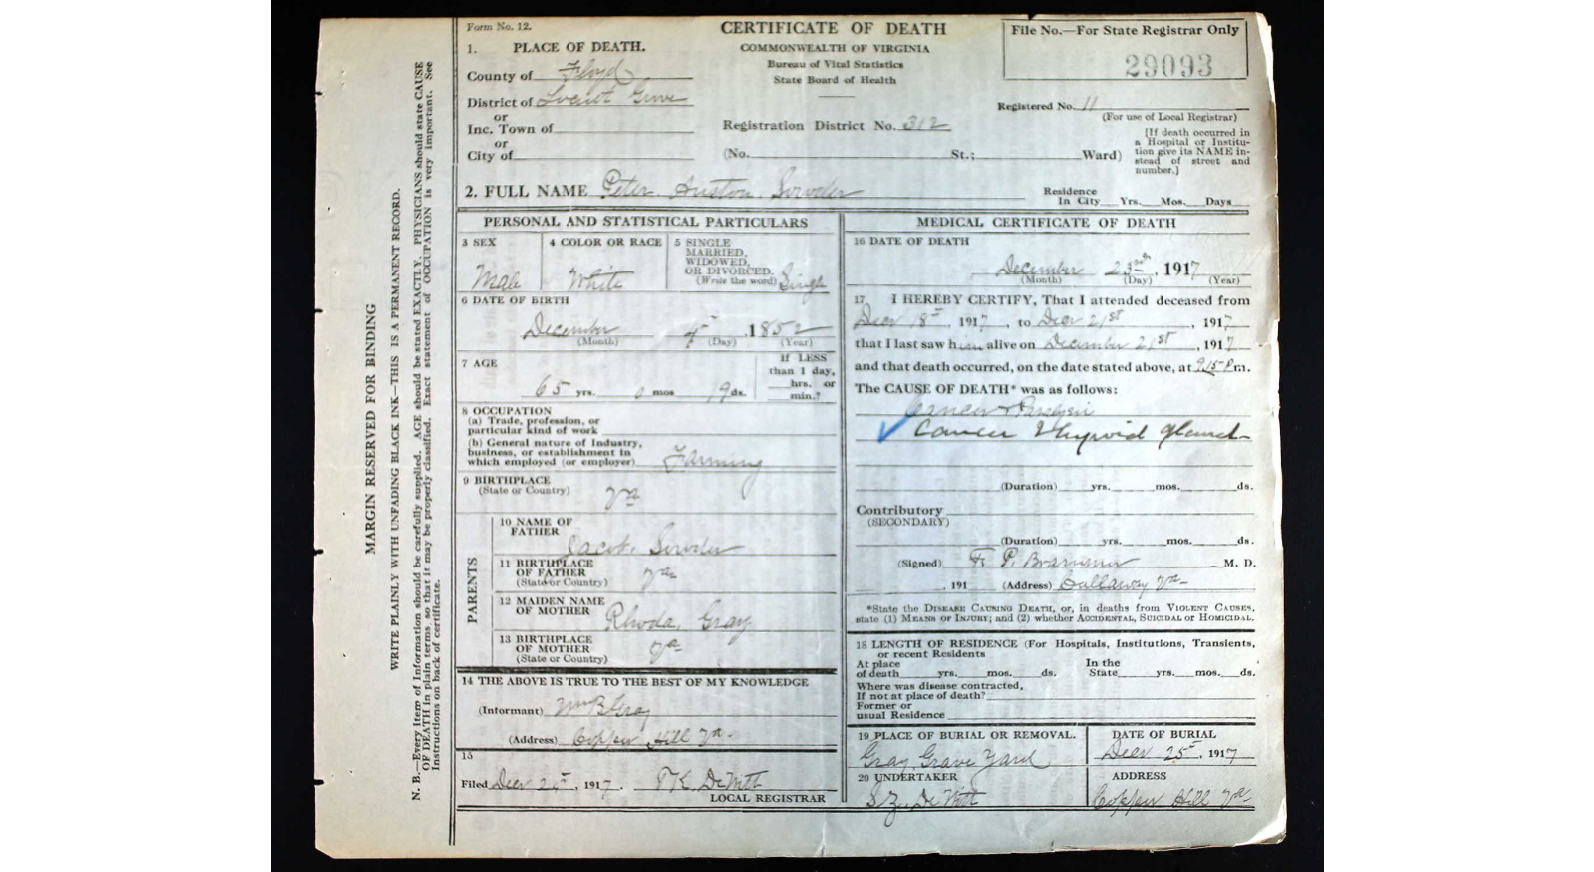 MARGIN RESERVED FOR BINDING
WRITE PLAINLY WITH UNFADING BLACK INK—THIS IS A PERMANENT RECORD.
N. B.—Every Item of Information should be carefully supplied. AGE should be stated EXACTLY. PHYSICIANS should state CAUSE
OF DEATH in plain terms, so that it may be properly classified. Exact statement of OCCUPATION is very important. See
Instructions on back of certificate.
Form No. 12.
CERTIFICATE OF DEATH
COMMONWEALTH OF VIRGINIA
Bureau of Vital Statistics
State Board of Health
File No.—For State Registrar Only
29093
1. PLACE OF DEATH.
County of Floyd
District of Locust Grove
or
Inc. Town of
or
City of
Registration District No. 312
Registered No. 11
(For use of Local Registrar)
(No. St.; Ward)
[If death occurred in
a Hospital or Institu-
tion give its NAME in-
stead of street and
number.]
2. FULL NAME Peter Auston Sowder
Residence
In City Yrs. Mos. Days
PERSONAL AND STATISTICAL PARTICULARS
3 SEX
Male
4 COLOR OR RACE
White
5 SINGLE
MARRIED,
WIDOWED,
OR DIVORCED.
(Write the word) Single
6 DATE OF BIRTH
December 4th, 1852
(Month) (Day) (Year)
7 AGE
65 yrs. 0 mos 19 ds.
If LESS
than 1 day,
hrs. or
min.?
8 OCCUPATION
(a) Trade, profession, or
particular kind of work
(b) General nature of Industry,
business, or establishment in
which employed (or employer) Farming
9 BIRTHPLACE
(State or Country) Va
PARENTS
10 NAME OF
FATHER
Jacob Sowder
11 BIRTHPLACE
OF FATHER
(State or Country) Va
12 MAIDEN NAME
OF MOTHER
Rhoda Gray
13 BIRTHPLACE
OF MOTHER
(State or Country) Va
14 THE ABOVE IS TRUE TO THE BEST OF MY KNOWLEDGE
(Informant) Wm B Gray
(Address) Copper Hill Va
15
Filed Decr, 1917. DeWitt
LOCAL REGISTRAR
MEDICAL CERTIFICATE OF DEATH
16 DATE OF DEATH
December 23, 1917
(Month) (Day) (Year)
17 I HEREBY CERTIFY, That I attended deceased from
Decr 18th 1917, to Decr 21st, 1917
that I last saw him alive on December 21st, 1917
and that death occurred, on the date stated above, at 9.15 P m.
The CAUSE OF DEATH* was as follows:
Cancer & Paralysis
Cancer Thyroid gland
(Duration) yrs. mos. ds.
Contributory
(SECONDARY)
(Duration) yrs. mos. ds.
(Signed) F. P. M. D.
, 191 (Address) Callaway Va
*State the DISEASE CAUSING DEATH, or, in deaths from VIOLENT CAUSES,
state (1) MEANS OF INJURY; and (2) whether ACCIDENTAL, SUICIDAL or HOMICIDAL.
18 LENGTH OF RESIDENCE (For Hospitals, Institutions, Transients,
or recent Residents
At place
of death yrs. mos. ds.
In the
State yrs. mos. ds.
Where was disease contracted,
If not at place of death?
Former or
usual Residence
19 PLACE OF BURIAL OR REMOVAL.
Gray Grave Yard
DATE OF BURIAL
Decr 25th, 1917
20 UNDERTAKER
DeWitt
ADDRESS
Copper Hill Va